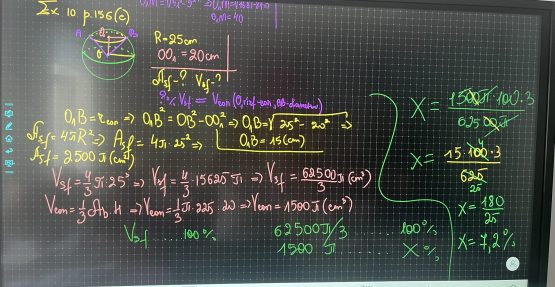 Ex 10 p.156(c)
O₁M = 40
A O₁ B
O
R = 25cm
OO₁ = 20cm
Asf - ? Vsf - ?
? % Vsf = Vcon (O, vârf-con, AB-diametru)
O₁B = rcon => O₁B² = OB² - OO₁² => O₁B = √25² - 20² =>
O₁B = 15(cm)
Asf = 4πR² => Asf = 4π·25² =>
Asf = 2500π(cm²)
Vsf = 4/3 π·25³ => Vsf = 4/3 · 15625π => Vsf = 62500π/3 (cm³)
Vcon = 1/3 Ab·H => Vcon = 1/3 π·225·20 => Vcon = 1500π(cm³)
Vsf ..... 100%
62500π/3 ....... 100%
1500π ....... X%
X = 1500π·100·3 / 62500π
X = 15·100·3 / 625
4
25
X = 180/25
X = 7,2%